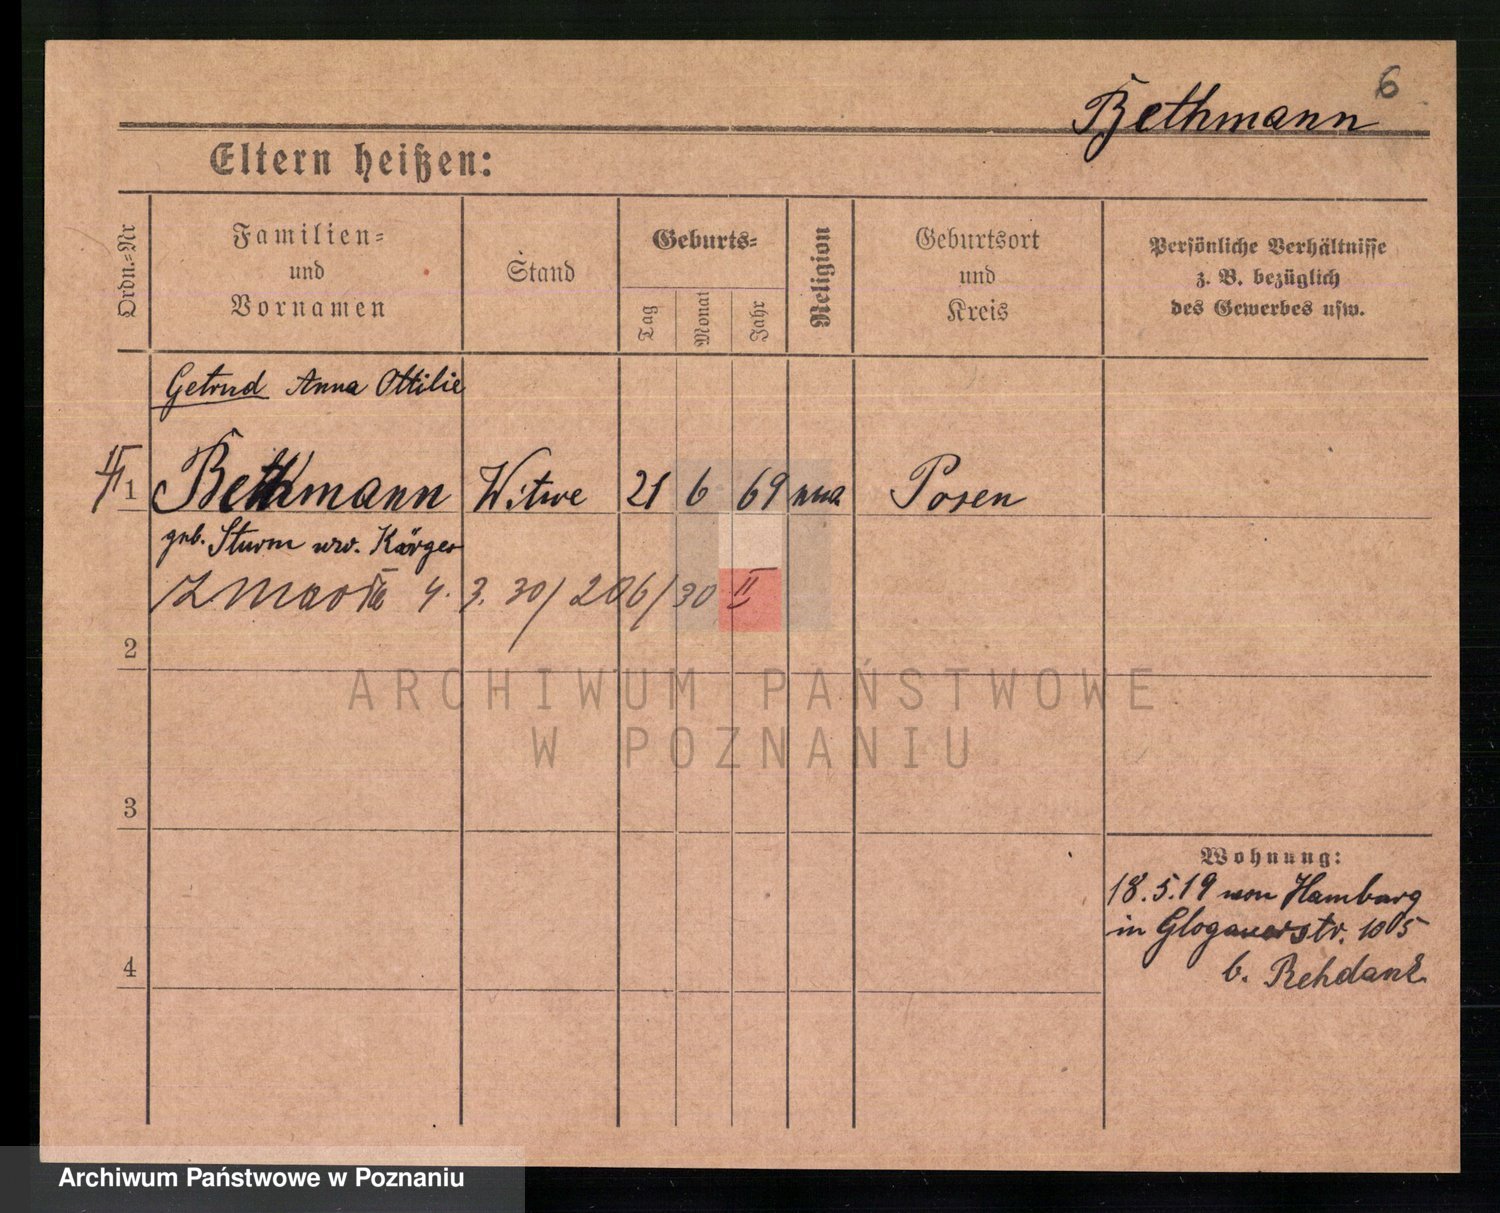 6
Bethmann
Eltern heißen:
Ordn.=Nr
Familien=
und
Vornamen
Stand
Geburts=
Tag
Monat
Jahr
Religion
Geburtsort
und
Kreis
Persönliche Verhältnisse
z. B. bezüglich
des Gewerbes usw.
Getrud Anna Ottilie
1 Bethmann Witwe 21 6 69 Posen
geb. Sturm Kärger
4. 3. 30/206/30 II
2
3
4
Wohnung:
18.5.19 von Hamburg
in Glogauerstr. 105
b. Rehdanz
ARCHIWUM PAŃSTWOWE
W POZNANIU
Archiwum Państwowe w Poznaniu